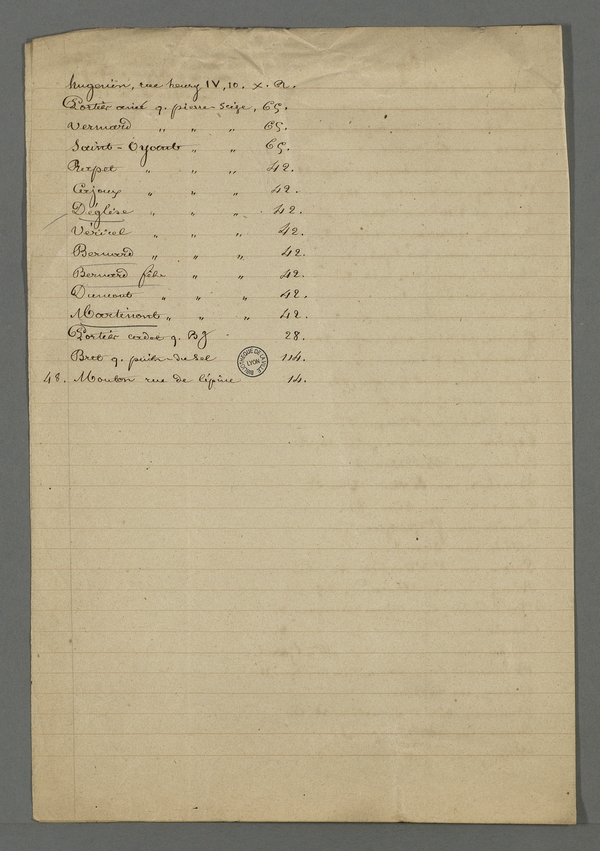 rue henry IV, 10. x. R.
Portier ainé q. pierre-scize, 65.
Vermard " " " 65.
Saint-Oyant " " 65.
Rapet " " " 42.
Cerjoux " " " 42.
Déglise " " " 42.
Véricel " " " 42.
Bernard " " " 42.
Bernard fils " " 42.
Dumont " " " 42.
Martinont " " " 42.
Portier cadet q. BJ 28.
Bret q. puits-du Sel 114.
BIBLIOTHEQUE DE LA VILLE LYON
48. Mouton rue de l'épine 14.